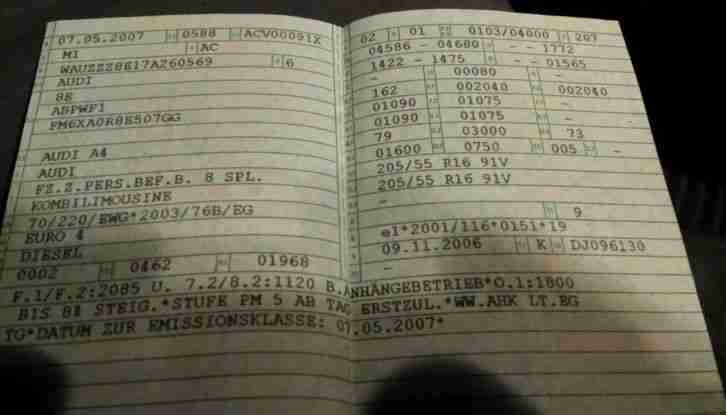 07.05.2007 0588 ACV00091X
M1 AC
WAUZZZ8E17A260569 6
AUDI
8E
ABPWF1
FM6XA0R8E507GG
AUDI A4
AUDI
FZ.Z.PERS.BEF.B. 8 SPL.
KOMBILIMOUSINE
70/220/EWG*2003/76B/EG
EURO 4
DIESEL
0002 0462 01968
02 01 0103/04000 207
04586 - 04680 - - 1772
1422 - 1475 - - 01565
- 00080 -
162 002040 002040
01090 01075 -
01090 01075 -
79 03000 73
01600 0750 005 -
205/55 R16 91V
205/55 R16 91V
-
9
e1*2001/116*0151*19
09.11.2006 K DJ096130
-
F.1/F.2:2085 U. 7.2/8.2:1120 B.ANHÄNGEBETRIEB*O.1:1800
BIS 8% STEIG.*STUFE PM 5 AB TAG ERSTZUL.*WW.AHK LT.EG
TG*DATUM ZUR EMISSIONSKLASSE: 07.05.2007*